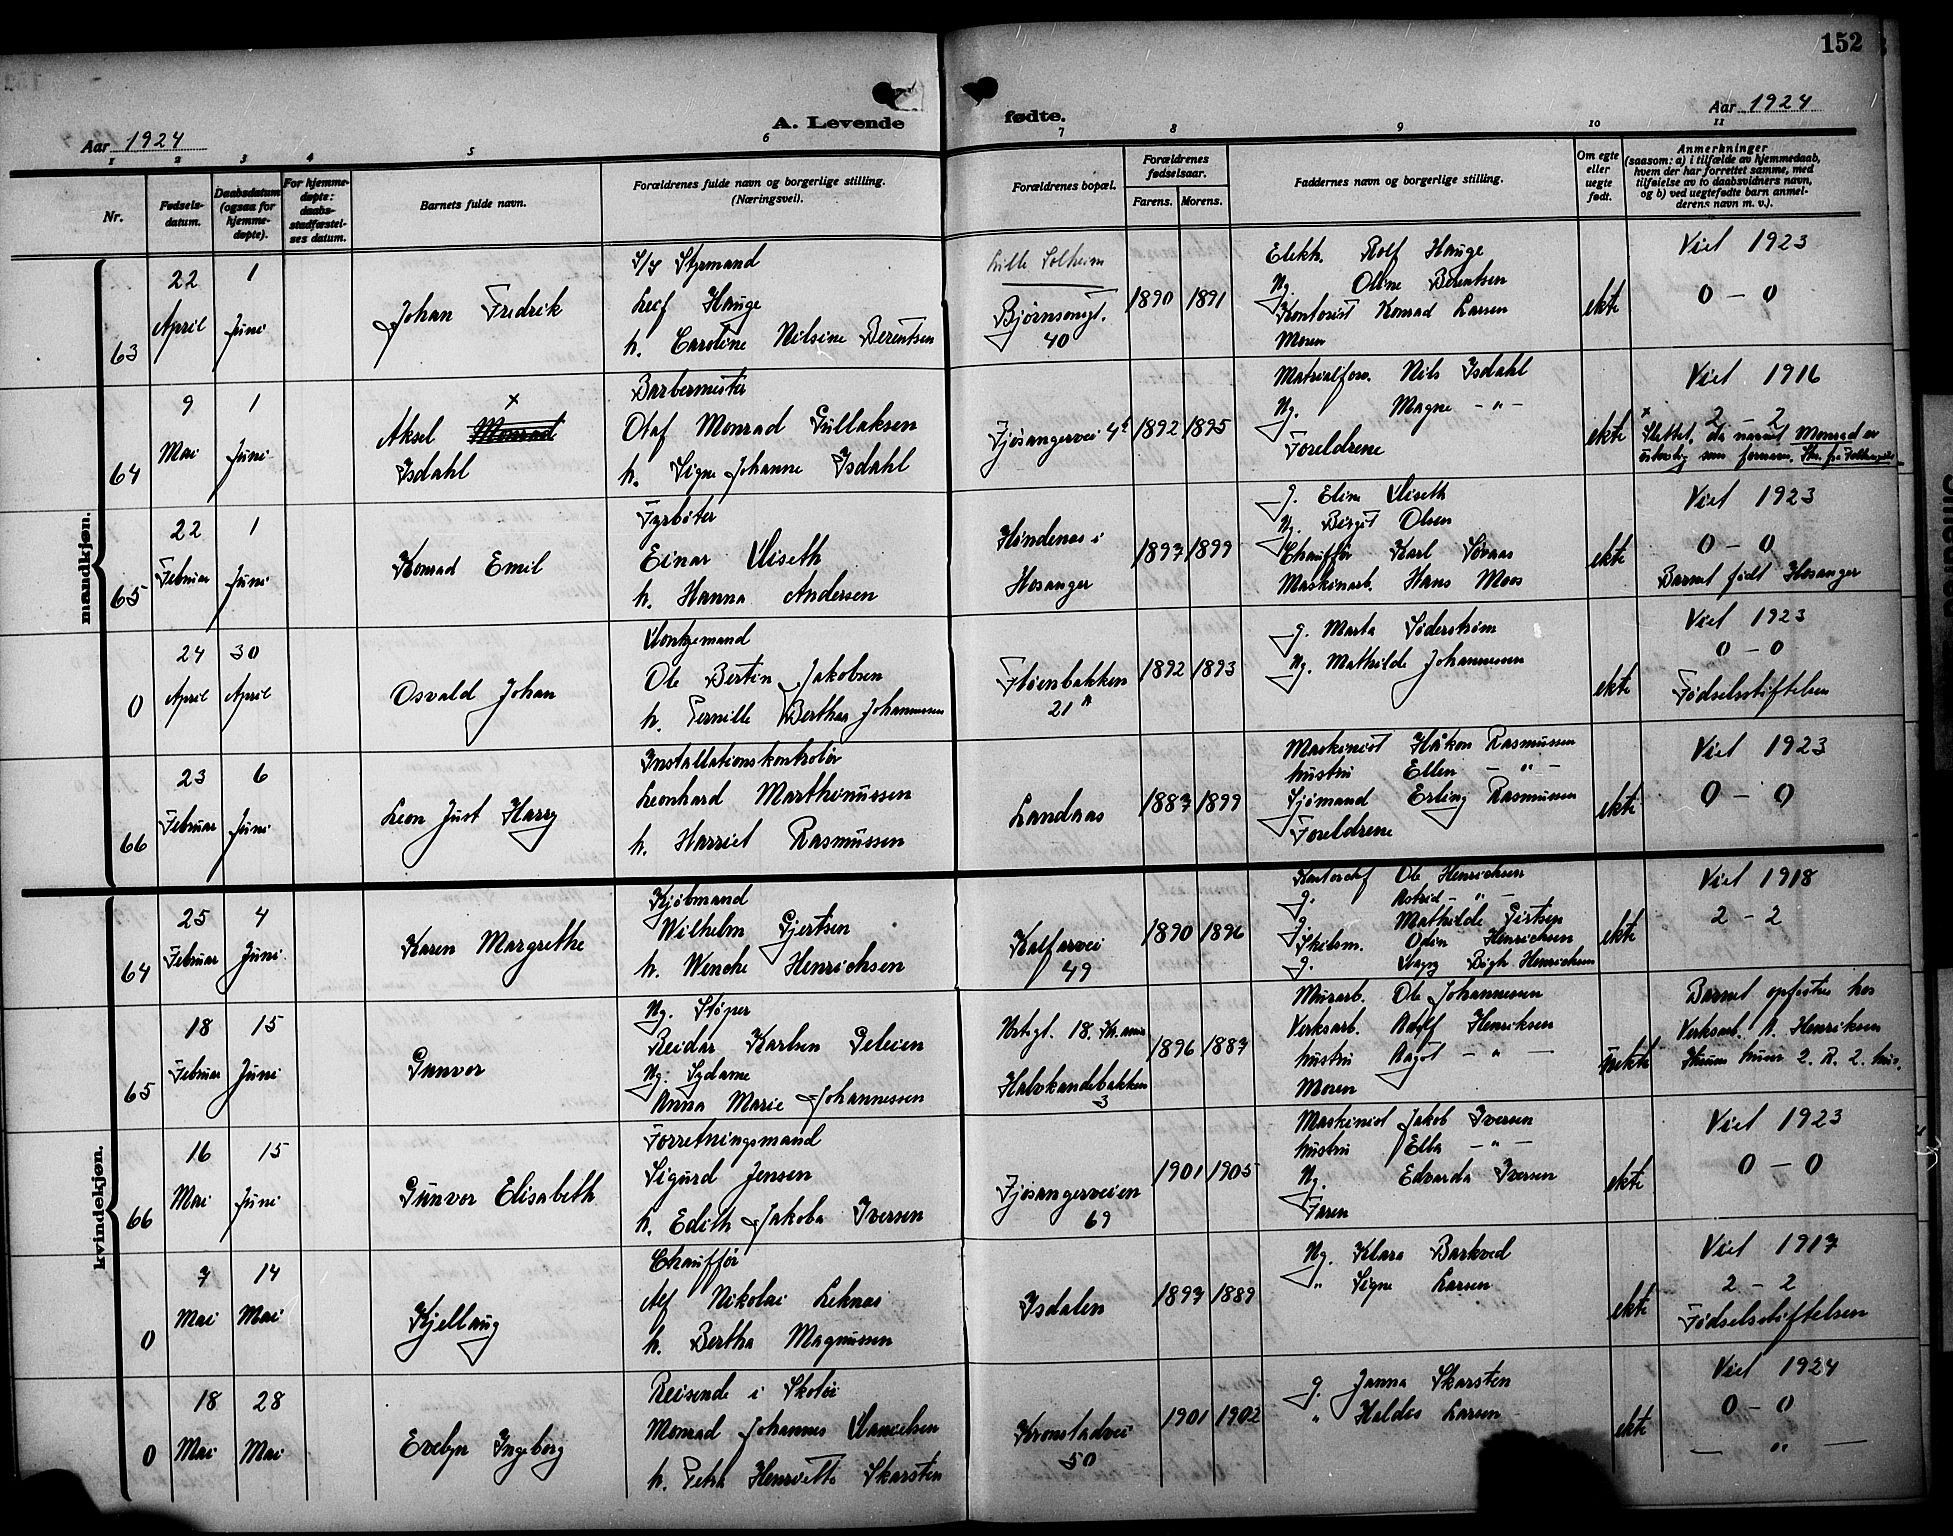 152
Aar 1924
A. Levende
fødte.
Aar 1924
1 2 3 4 5 6 7 8 9 10 11
Nr.
Fødsels-
datum.
Daabsdatum
(ogsaa for
hjemme-
døpte).
For hjemme-
døpte:
daabs-
stadfæstel-
ses datum.
Barnets fulde navn.
Forældrenes fulde navn og borgerlige stilling.
(Næringsvei).
Forældrenes bopæl.
Forældrenes
fødselsaar.
Farens. Morens.
Faddernes navn og borgerlige stilling.
Om egte
eller
uegte
født.
Anmerkninger
(saasom: a) i tilfælde av hjemmedaab,
hvem der har forrettet samme, med
tilføielse av to daabsvidners navn,
og b) ved uegtefødte barn anmel-
derens navn m. v.).
mandkjøn.
63
22
April
1
Juni
Johan Fredrik
S/S Styrmand
Leif Hauge
h. Caroline Nilsine Berentsen
Lille Solheim
Bjørnsonsgt.
40
1890 1891
Elektr. Rolf Hauge
Ug. Oline Berentsen
Kontorist Konrad Larsen
Moren
ekte
Viet 1923
0 – 0
64
9
Mai
1
Juni
Aksel Monrad x
Isdahl
Barbermester
Olaf Monrad Gullaksen
h. Signe Johanne Isdahl
Fjøsangervei 4
1892 1895
Materialforv. Nils Isdahl
Ug. Magne – " –
Foreldrene
ekte
Viet 1916
2 – 2
x Slettet, da navnet Monrad er
som fornavn.
65
22
Februar
1
Juni
Konrad Emil
Fyrbøter
Einar Uliseth
h. Hanna Andersen
Hindenes i
Hosanger
1897 1899
g. Eline Uliseth
Ug. Birgit Olsen
Chauffør Karl Søvaas
Maskinarb. Hans Moos
ekte
Viet 1923
0 – 0
Barnet født Hosanger
0
24
April
30
April
Osvald Johan
Vongemand
Ole Bertin Jakobsen
h. Pernille Berthea Johannessen
Fløenbakken
21 A
1892 1893
g. Marta Søderstrøm
Ug. Mathilde Johannessen
ekte
Viet 1923
0 – 0
Fødselsstiftelsen
66
23
Februar
6
Juni
Leon Just Harry
Installationskontrolør
Leonhard Marthinussen
h. Harriet Rasmussen
Landaas
1883 1899
Maskinist Håkon Rasmussen
hustru Ellen – " –
Sjømand Erling Rasmussen
Foreldrene
ekte
Viet 1923
0 – 0
kvindekjøn.
64
25
Februar
4
Juni
Karen Margrethe
Kjøbmand
Wilhelm Gjertsen
h. Wenche Henrichsen
Kalfarvei
49
1890 1896
Kontorchef Ole Henrichsen
g. Astrid – " –
g. Mathilde Gjertsen
Skibsm. Odin Henrichsen
g. Vagny Bøgh Henrichsen
ekte
Viet 1918
2 – 2
65
18
Februar
15
Juni
Gunvor
Ug. Støper
Reidar Karlsen Peleien
Ug. Sydame
Anna Marie Johannessen
18.
Halvkandebakken
3
1896 1887
Murarb. Ole Johannessen
Verksarb. Adolf Henriksen
hustru Ragot – " –
Moren
uekte
Barnet opfostres hos
Verksarb. A. Henriksen
2. R. 2. hus.
66
16
Mai
15
Juni
Gunvor Elisabeth
Forretningsmand
Sigurd Jensen
h. Edith Jakoba Iversen
Fjøsangerveien
69
1901 1905
Maskinist Jakob Iversen
hustru Elba – " –
Ug. Edvarda Iversen
Faren
ekte
Viet 1923
0 – 0
0
7
Mai
14
Mai
Kjellaug
Chauffør
Alf Nikolai Leknes
h. Bertha Magnussen
Isdalen
1897 1889
Ug. Klara Barkved
" Signe Larsen
ekte
Viet 1917
2 – 2
Fødselsstiftelsen
0
18
Mai
28
Mai
Evelyn Ingeborg
Reisende i Skotøi
Monrad Johannes Danielsen
h. Petra Henriette Skarsten
Kronstadvei
50
1901 1902
g. Janna Skarsten
" Haldis Larsen
ekte
Viet 1924
0 – 0
— " —